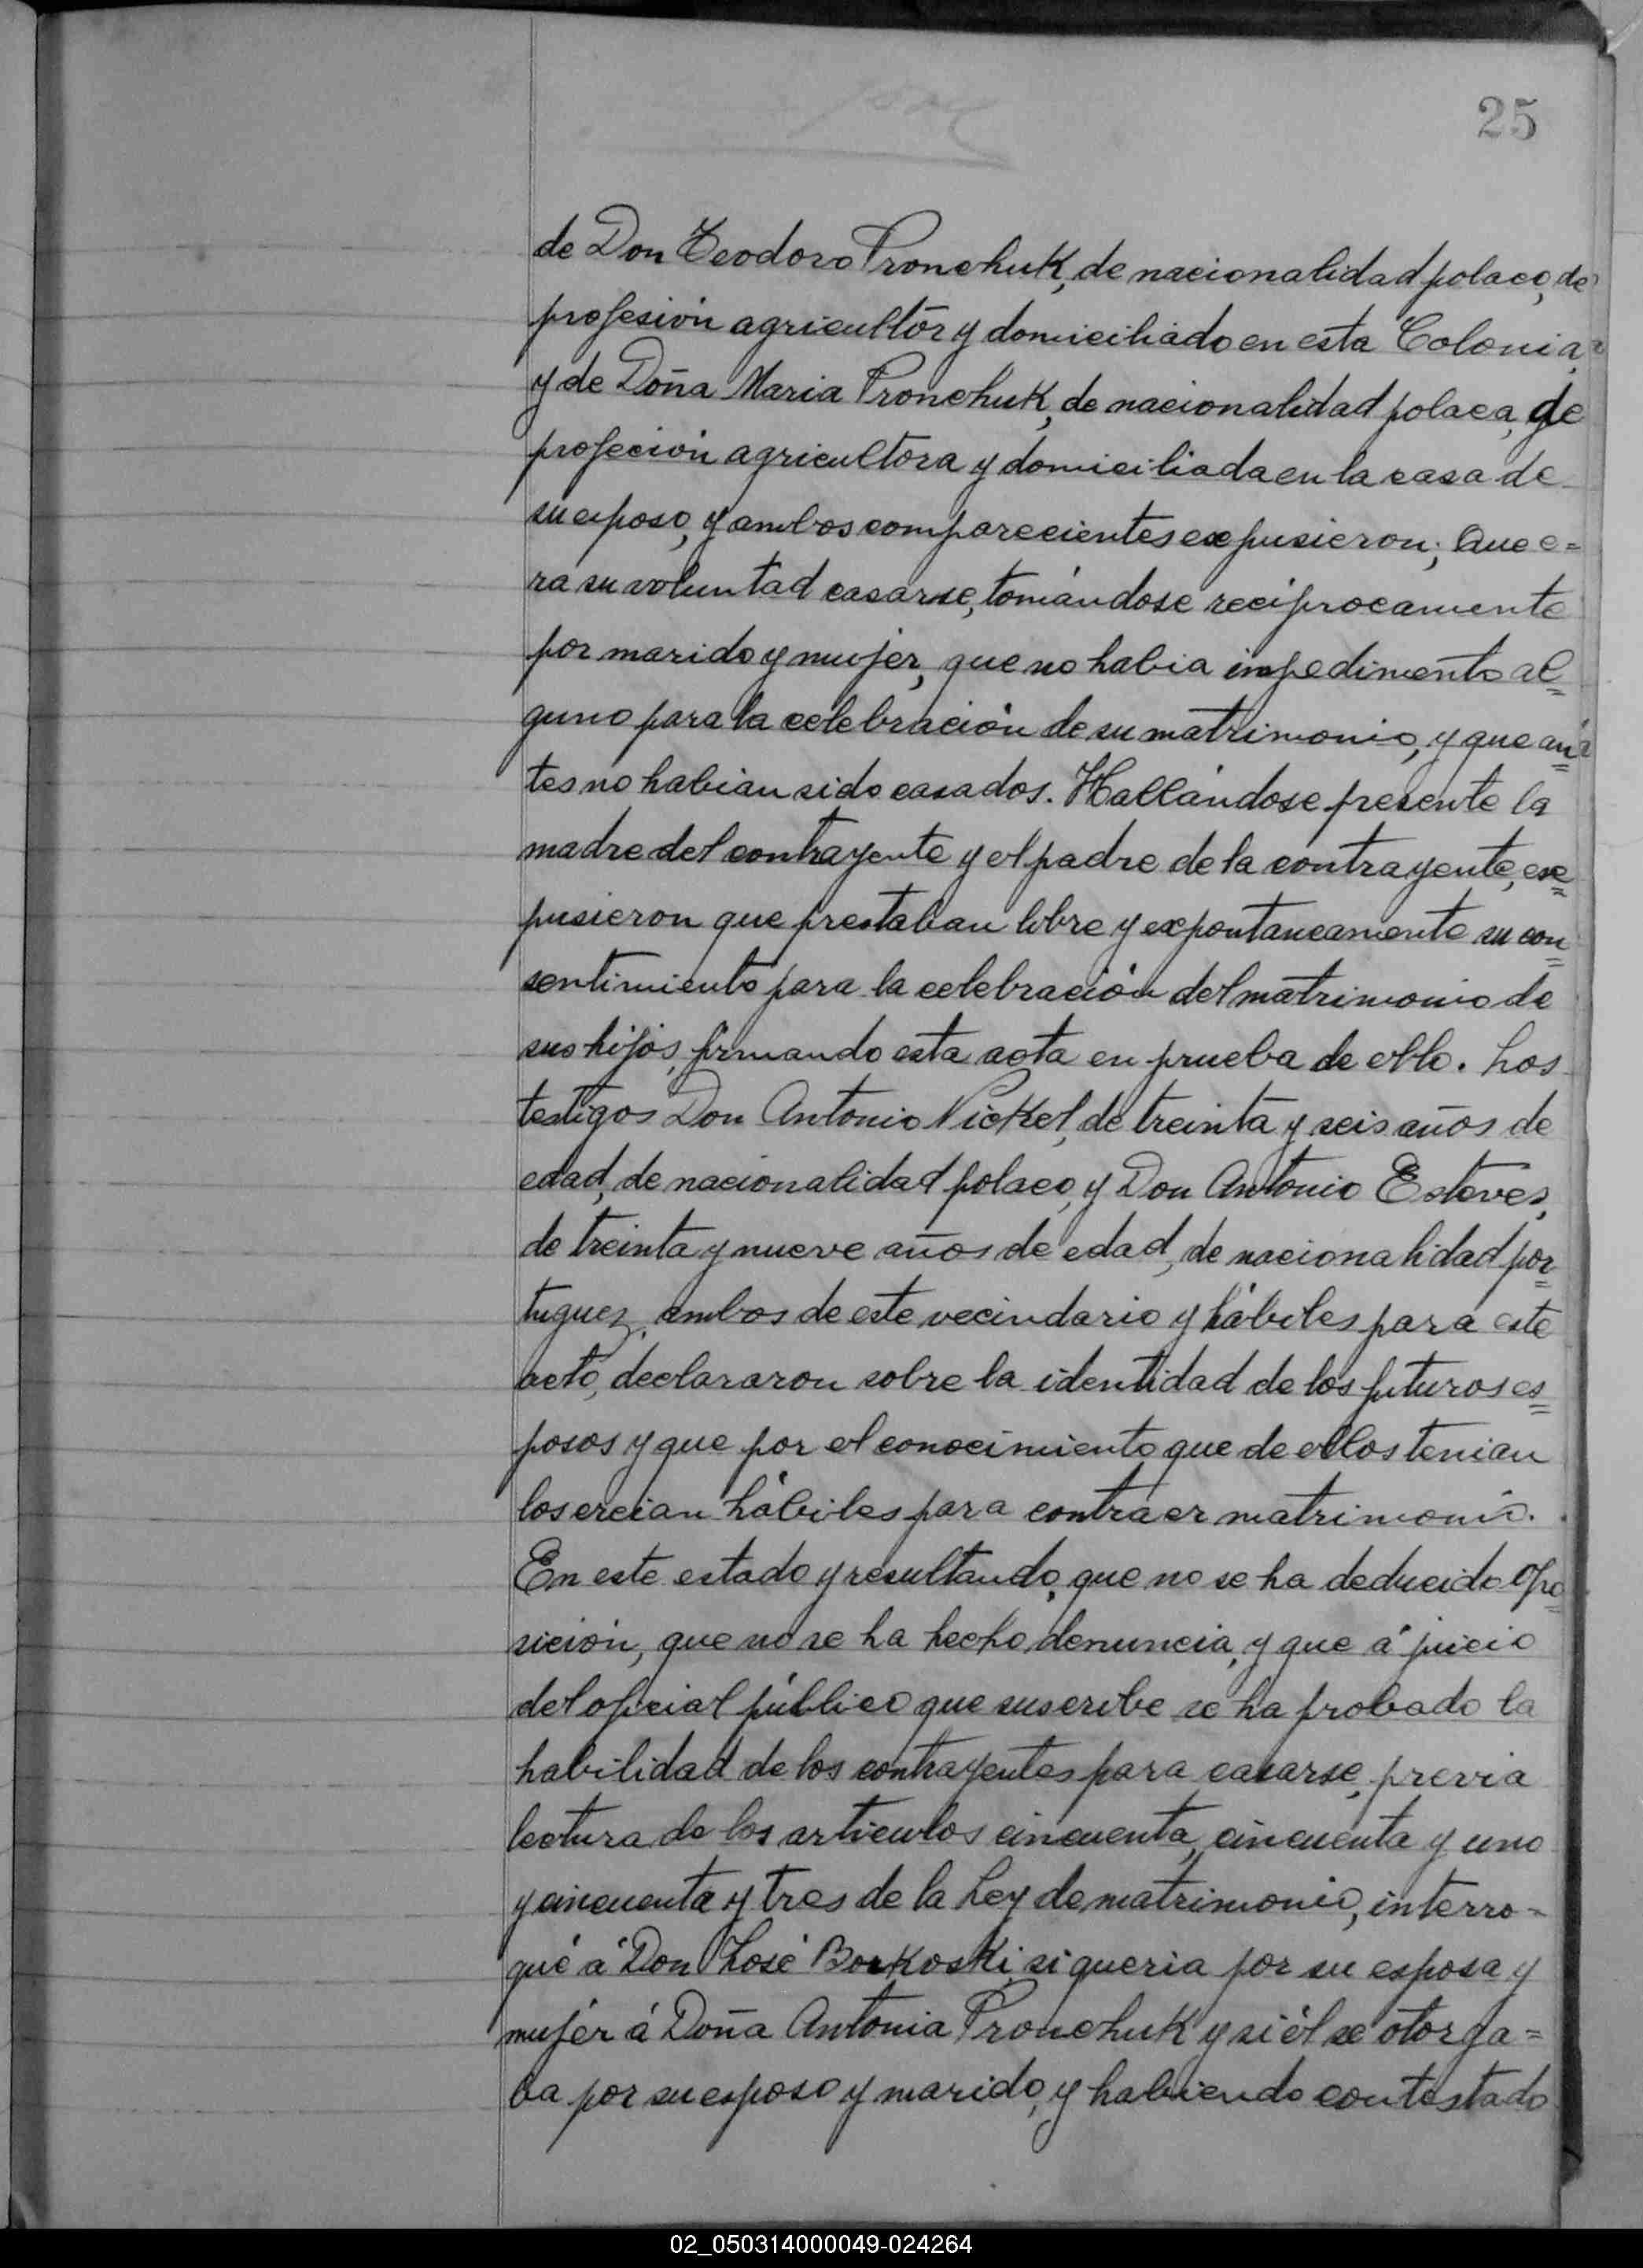 25
de Don Teodoro Pronchuk, de nacionalidad polaco, de
profesión agricultór y domiciliado en esta Colonia,
y de Doña Maria Pronchuk, de nacionalidad polaca, de
profeción agricultora y domiciliada en la casa de
su esposo, y ambos comparecientes expusieron; Que e=
ra su voluntad casarse, tomándose reciprocamente
por marido y mujer, que no habia impedimento al=
guno para la celebración de su matrimonio, y que an=
tes no habian sido casados. Hallándose presente la
madre del contrayente y el padre de la contrayente, ex=
pusieron que prestaban libre y expontaneamente su con=
sentimiento para la celebración del matrimonio de
sus hijos, firmando esta acta en prueba de ello. Los
testigos Don Antonio Nickel, de treinta y seis años de
edad, de nacionalidad polaco, y Don Antonio Esteves,
de treinta y nueve años de edad, de nacionalidad por=
tuguez, ambos de este vecindario y hábiles para este
acto, declararon sobre la identidad de los futuros es=
posos y que por el conocimiento que de ellos tenian
los creian hábiles para contraer matrimonio.
En este estado y resultando, que no se ha deducido opo=
sición, que no se ha hecho denuncia, y que á juicio
del oficial público que suscribe se ha probado la
habilidad de los contrayentes para casarse, previa
lectura de los articulos cincuenta, cincuenta y uno
y cincuenta y tres de la Ley de matrimonio, interro-
gué á Don José Borkoski si queria por su esposa y
mujér á Doña Antonia Pronchuk y si él se otorga=
ba por su esposo y marido, y habiendo contestado
02_050314000049-024264